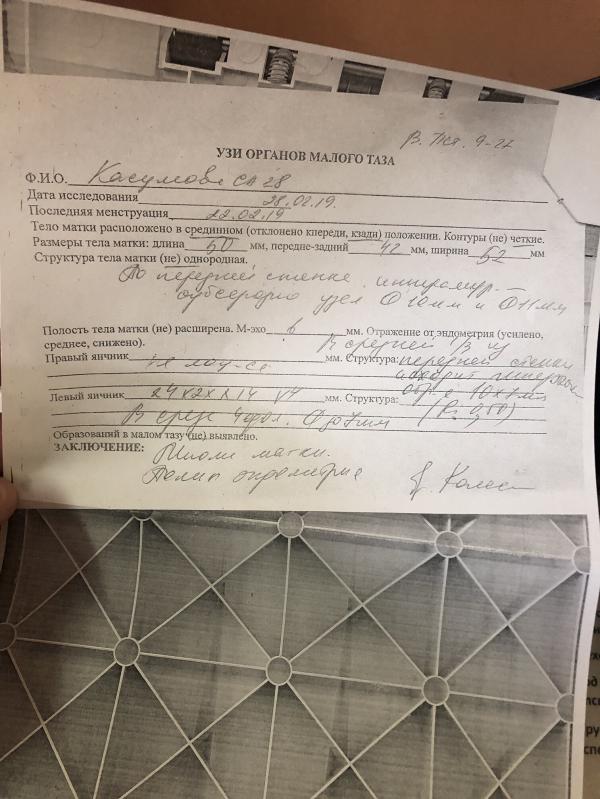 УЗИ ОРГАНОВ МАЛОГО ТАЗА
Ф.И.О. Касумова
Дата исследования 28.02.19.
Последняя менструация 22.02.19
Тело матки расположено в срединном (отклонено кпереди, кзади) положении. Контуры (не) четкие.
Размеры тела матки: длина 50 мм, передне-задний 42 мм, ширина 52 мм
Структура тела матки (не) однородная.
По передней стенке интрамур.-
субсерозно узел 10мм и 11мм
Полость тела матки (не) расширена. М-эхо 6 мм. Отражение от эндометрия (усилено,
среднее, снижено). В средней 1/3 из
Правый яичник мм. Структура: передней стенки
исходит
Левый яичник мм. Структура: обр-е 10х7мм
В срезе 4 фол. 7мм
Образований в малом тазу (не) выявлено.
ЗАКЛЮЧЕНИЕ: Миома матки.
Полип эндометрия